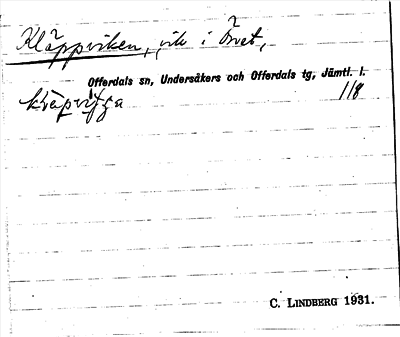 Kläppviken, vik i Övet,
Offerdals sn, Undersåkers och Offerdals tg, Jämtl. l.
118
C. LINDBERG 1931.